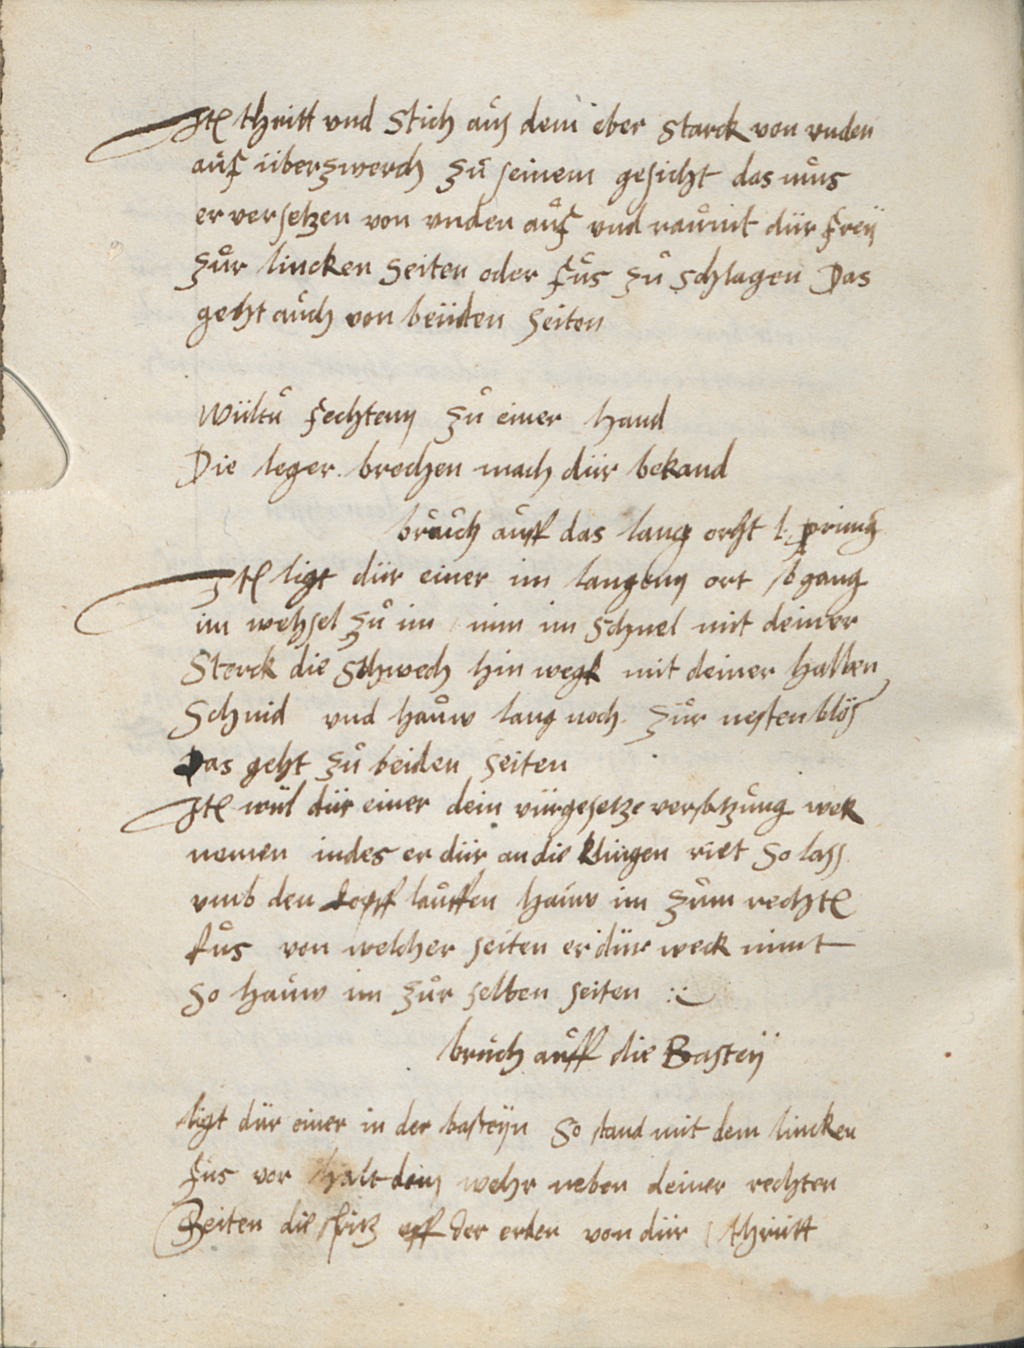 Jt̃ thritt vnd Stich aůs dem eber starck von vnden
aůf überzwerch zů seinem gesicht das můs
er versetzen von vnden aůf vnd raůmt dür freÿ
zůr lincken seiten oder fůs zů schlagen Das
geht aůch von beÿden seiten
Wültů fechtenn zů einer hand
Die leger brechen mach dür bekand
brůch aůff das lang orht
Jt̃ ligt dür einer im langenn ort so gang
im wehsel zů im nim im schnel mit deiner
Sterck die schwech hin wegk mit deiner halben
Schnid vnd haůw lang noch zůr nesten blös
Das geht zů beiden seiten
Jt̃ wül dür einer dein vürgesetze versatzůng wek
nemen indes er dür an die klingen riet So lass
vmb den kopff laůffen haůw im zům recht̃
fůs von welcher seiten er dür weck nimt
so haůw im zůr selben seiten
brůch aůff die Basteÿ
ligt dür einer in der basteÿn So stand mit dem lincken
fůs vor halt dein wehr neben deiner rechten
Seiten die spitz vff der erden von dür thrütt